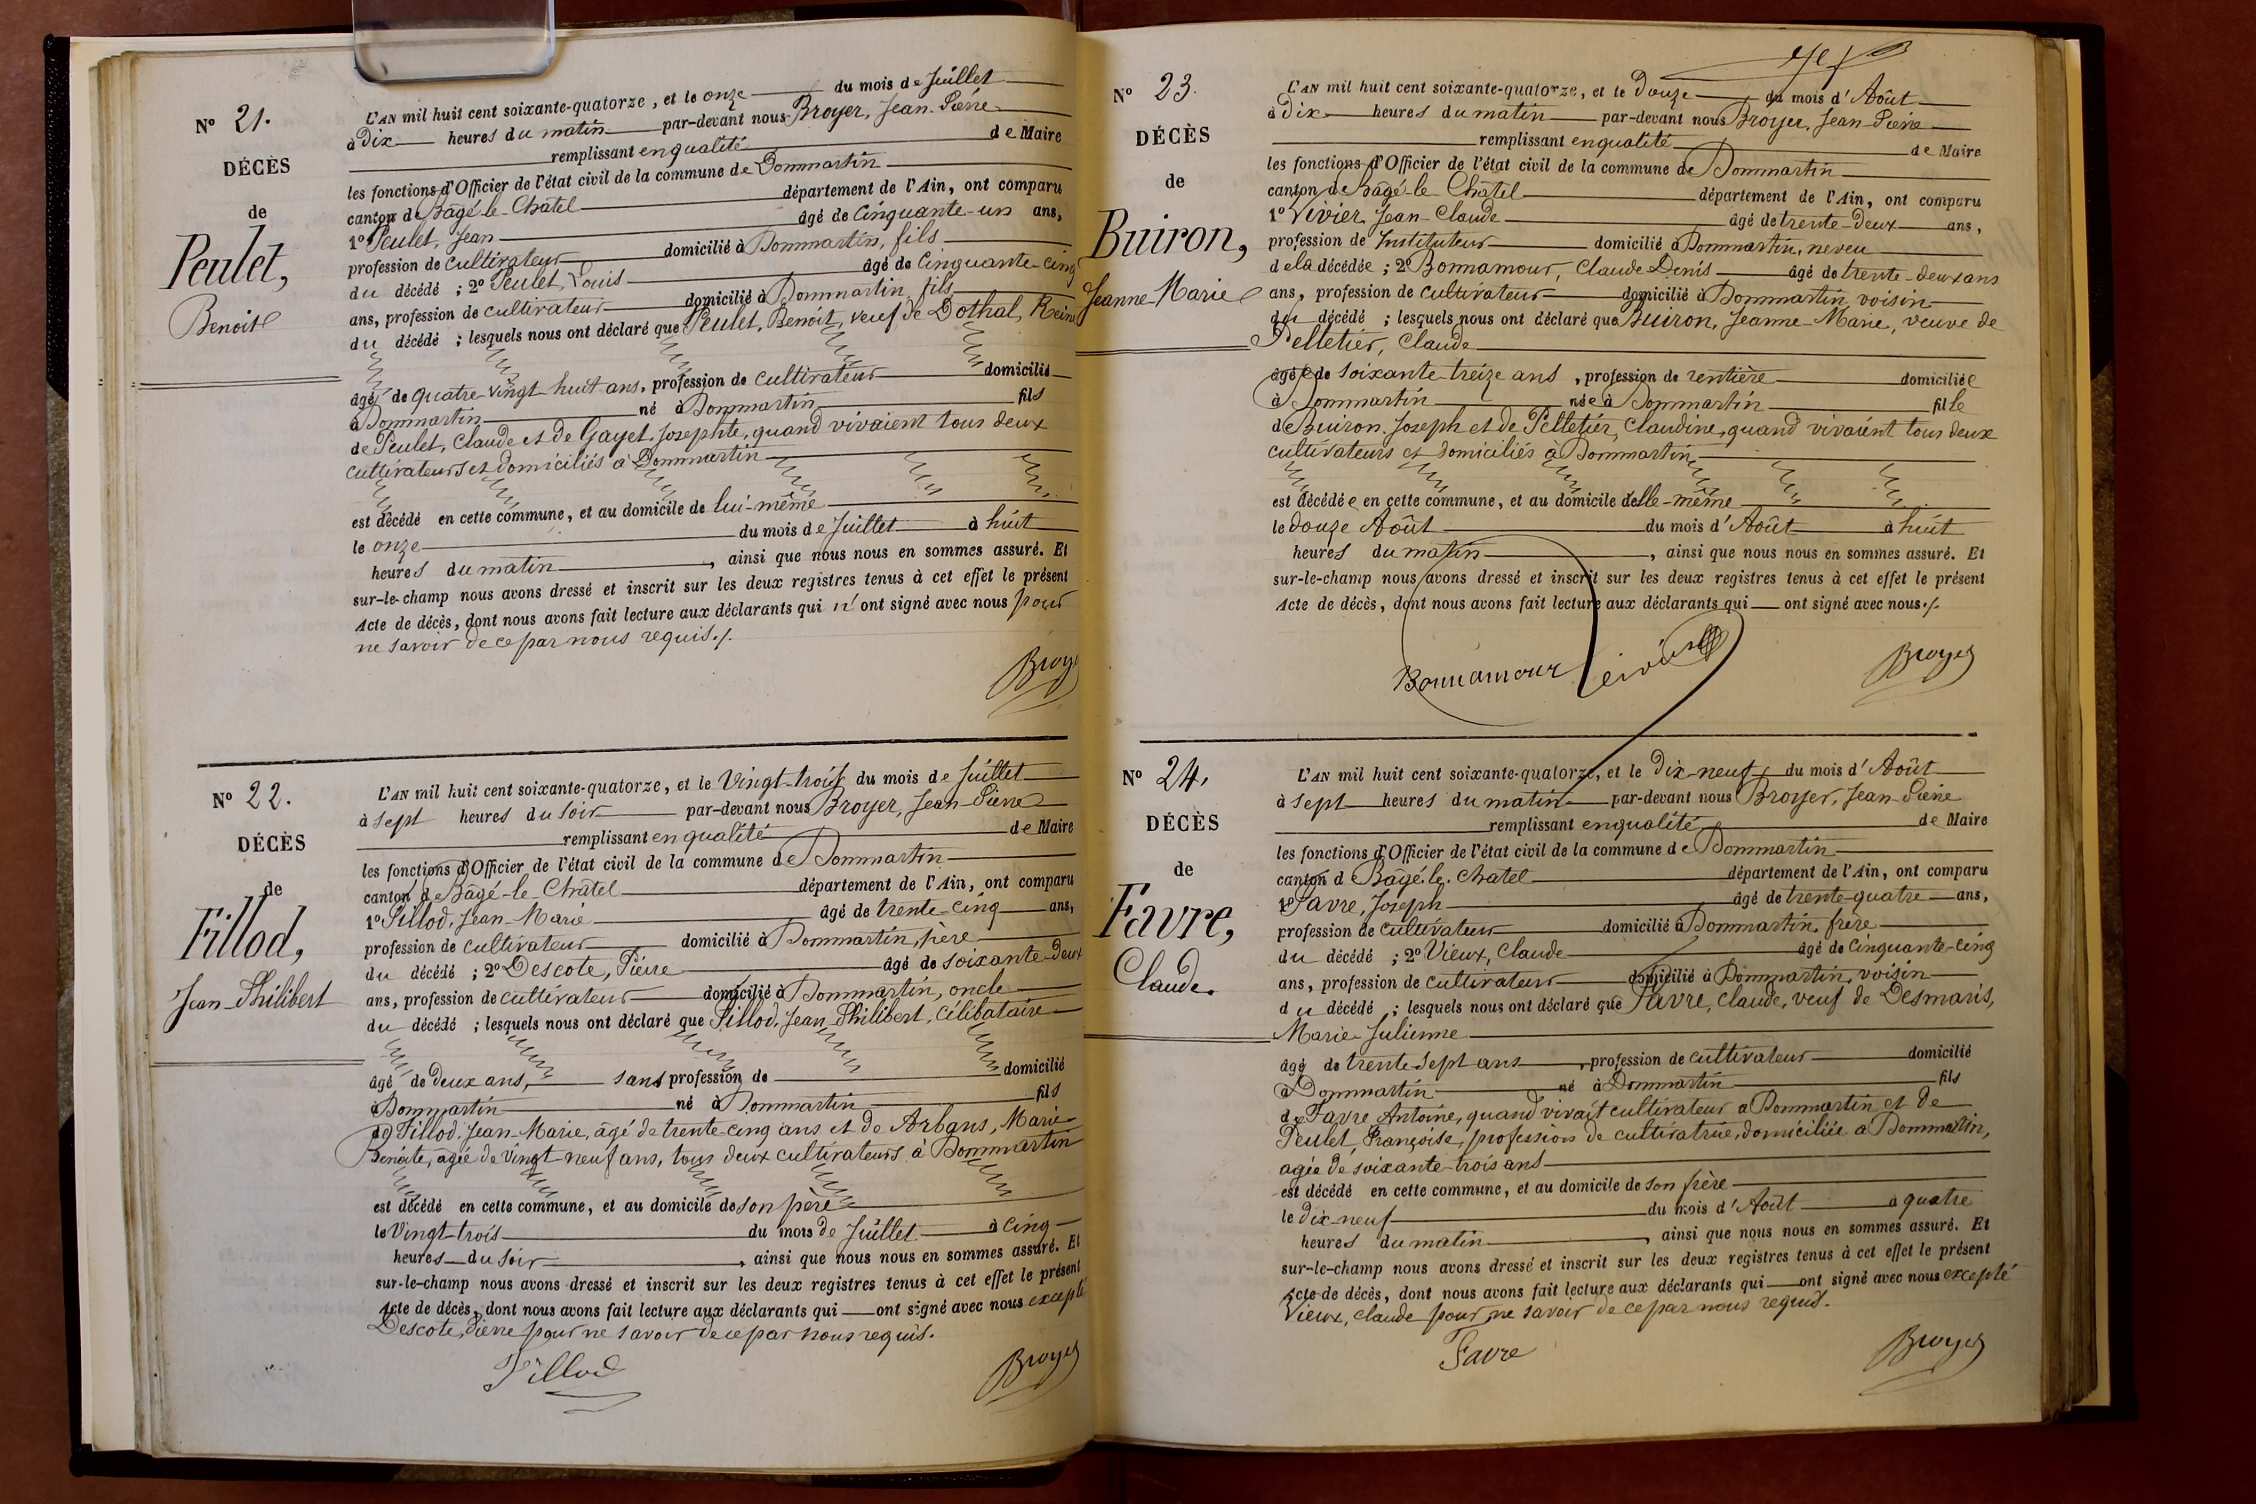 N° 21.
DÉCÈS
de
Peulet,
Benoit
L'AN mil huit cent soixante-quatorze, et le onze du mois de Juillet
à Dix heures du matin par-devant nous Broyer, Jean-Pierre
remplissant en qualité de Maire
les fonctions d'Officier de l'état civil de la commune de Dommartin
canton de Bâgé-le-Châtel département de l'Ain, ont comparu
1° Peulet, Jean âgé de Cinquante-un ans,
profession de cultivateur domicilié à Dommartin, fils
du décédé ; 2° Peulet, Louis âgé de Cinquante-cinq
ans, profession de cultivateur domicilié à Dommartin, fils
du décédé ; lesquels nous ont déclaré que Peulet, Benoit, veuf de Dothal, Reine
âgé de quatre-vingt-huit ans, profession de cultivateur domicilié
à Dommartin né à Dommartin fils
de Peulet, Claude et de Gayet, Josephte, quand vivaient tous deux
cultivateurs et domiciliés à Dommartin
est décédé en cette commune, et au domicile de lui-même
le onze du mois de Juillet à huit
heures du matin, ainsi que nous nous en sommes assuré. Et
sur-le-champ nous avons dressé et inscrit sur les deux registres tenus à cet effet le présent
Acte de décès, dont nous avons fait lecture aux déclarants qui n'ont signé avec nous pour
ne savoir de ce par nous requis./.
Broyer
N° 22.
DÉCÈS
de
Fillod,
Jean-Philibert
L'AN mil huit cent soixante-quatorze, et le Vingt-trois du mois de Juillet
à sept heures du soir par-devant nous Broyer, Jean-Pierre
remplissant en qualité de Maire
les fonctions d'Officier de l'état civil de la commune de Dommartin
canton de Bâgé-le-Châtel département de l'Ain, ont comparu
1° Fillod, Jean-Marie âgé de trente-cinq ans,
profession de cultivateur domicilié à Dommartin, père
du décédé ; 2° Descote, Pierre âgé de soixante-deux
ans, profession de cultivateur domicilié à Dommartin, oncle
du décédé ; lesquels nous ont déclaré que Fillod, Jean-Philibert, Célibataire
âgé de deux ans, sans profession de domicilié
à Dommartin né à Dommartin fils
de Fillod, Jean-Marie, âgé de trente-cinq ans et de Arbans, Marie-
Benoite, agée de vingt-neuf ans, tous deux cultivateurs à Dommartin
est décédé en cette commune, et au domicile de son père
le Vingt-trois du mois de Juillet à cinq
heures du soir, ainsi que nous nous en sommes assuré. Et
sur-le-champ nous avons dressé et inscrit sur les deux registres tenus à cet effet le présent
Acte de décès, dont nous avons fait lecture aux déclarants qui ont signé avec nous excepté
Descote, Pierre pour ne savoir de ce par nous requis.
Fillod Broyer
N° 23.
DÉCÈS
de
Buiron,
Jeanne-Marie
L'AN mil huit cent soixante-quatorze, et le Douze du mois d'Août
à Dix heures du matin par-devant nous Broyer, Jean-Pierre
remplissant en qualité de Maire
les fonctions d'Officier de l'état civil de la commune de Dommartin
canton de Bâgé-le Châtel département de l'Ain, ont comparu
1° Vivier, Jean-Claude âgé de trente-deux ans,
profession de Instituteur domicilié à Dommartin, neveu
de la décédée ; 2° Bonnamour, Claude Denis âgé de trente-deux ans
ans, profession de cultivateur domicilié à Dommartin, voisin
du décédé ; lesquels nous ont déclaré que Buiron, Jeanne-Marie, veuve de
Pelletier, Claude
âgée de soixante-treize ans, profession de rentière domiciliée
à Dommartin née à Dommartin fille
de Buiron, Joseph et de Pelletier, Claudine, quand vivaient tous deux
cultivateurs et domiciliés à Dommartin
est décédée en cette commune, et au domicile delle-même
le douze Août du mois d'Août à huit
heures du matin, ainsi que nous nous en sommes assuré. Et
sur-le-champ nous avons dressé et inscrit sur les deux registres tenus à cet effet le présent
Acte de décès, dont nous avons fait lecture aux déclarants qui ont signé avec nous./.
Bonnamour Vivier Broyer
N° 24.
DÉCÈS
de
Favre,
Claude.
L'AN mil huit cent soixante-quatorze, et le Dix-neuf du mois d'Août
à sept heures du matin par-devant nous Broyer, Jean-Pierre
remplissant en qualité de Maire
les fonctions d'Officier de l'état civil de la commune de Dommartin
canton d Bâgé-le-Chatel département de l'Ain, ont comparu
1° Favre, Joseph âgé de trente-quatre ans,
profession de cultivateur domicilié à Dommartin, frère
du décédé ; 2° Vieux, Claude âgé de Cinquante-cinq
ans, profession de cultivateur domicilié à Dommartin, voisin
du décédé ; lesquels nous ont déclaré que Favre, Claude, veuf de Desmaris,
Marie-Julienne
âgé de trente-sept ans, profession de cultivateur domicilié
à Dommartin né à Dommartin fils
de Favre Antoine, quand vivait cultivateur a Dommartin et de
Peulet, Françoise, profession de cultivatrice, domiciliée a Dommartin,
agée de soixante-trois ans
est décédé en cette commune, et au domicile de son frère
le dix-neuf du mois d'Août à quatre
heures du matin, ainsi que nous nous en sommes assuré. Et
sur-le-champ nous avons dressé et inscrit sur les deux registres tenus à cet effet le présent
Acte de décès, dont nous avons fait lecture aux déclarants qui ont signé avec nous excepté
Vieux, Claude pour ne savoir de ce par nous requis.
Favre Broyer